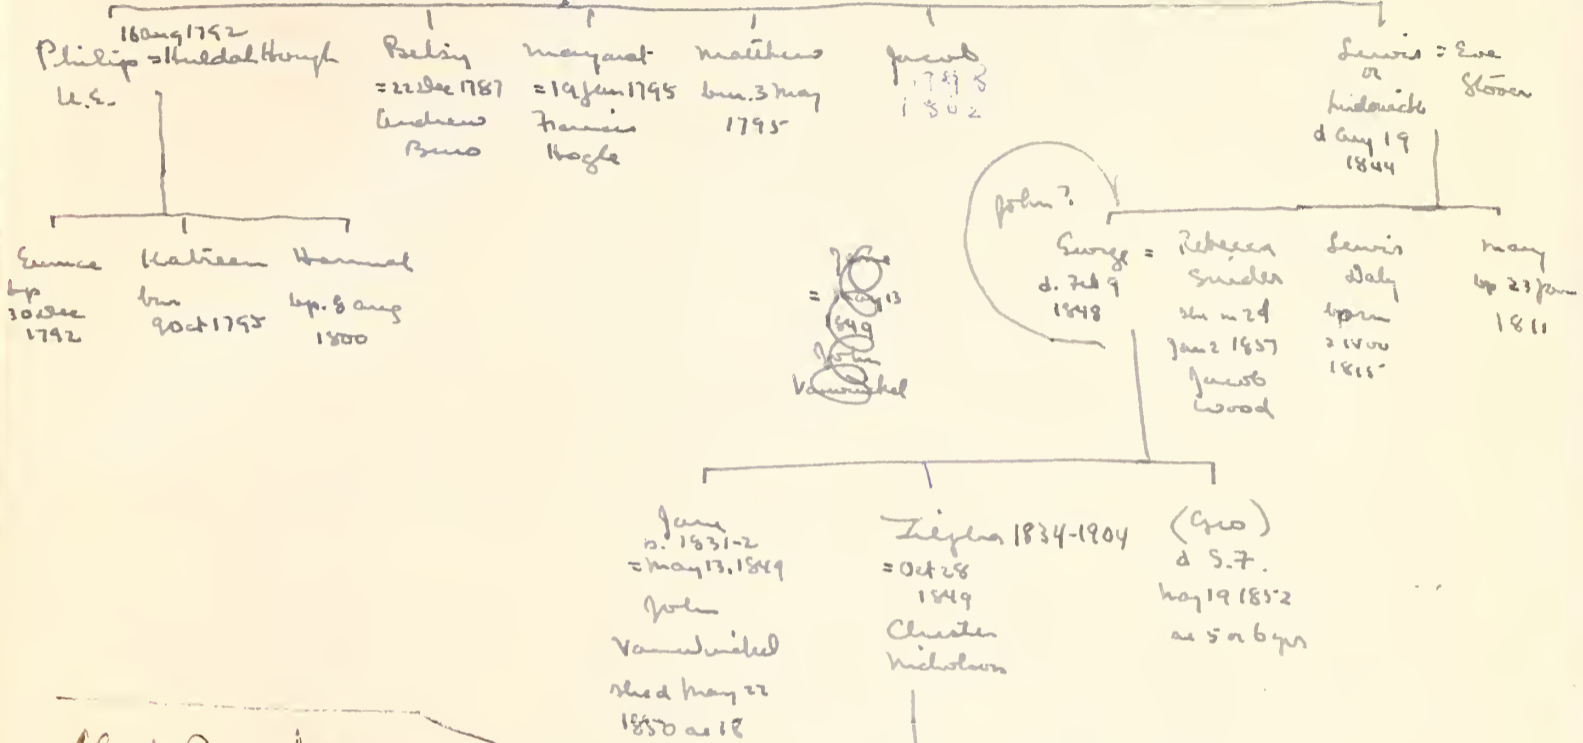 16 Aug 1792
Philip = Huldah Hough
U.E.
Betsy
= 22 Dec 1787
Andrew
Margaret
= 19 Jan 1795
Francis
Hogle
Matthew
brn. 3 May
1795
Jacob
1802
Lewis = Eve
or
Stover
Ludowick
d Aug 19
1844
Eunice
bp
30 Dec
1792
Katreen
brn
9 Oct 1795
Hannah
bp. 8 Aug
1800
John?
George =
d. Feb 9
1848
Rebecca
Snider
she m 2d
Jan 2 1857
Jacob
Wood
Lewis
Daly
1815
Mary
bp 23 Jan
1811
Jane
= May 13
1849
John
Vanwinckel
Jane
b. 1831-2
= May 13, 1849
John
Vanwinckel
she d May 22
1850 ae 18
Zilpha 1834-1904
= Oct 28
1849
Chester
Nicholson
(Geo)
d S.F.
May 19 1852
ae 5 or 6 yrs